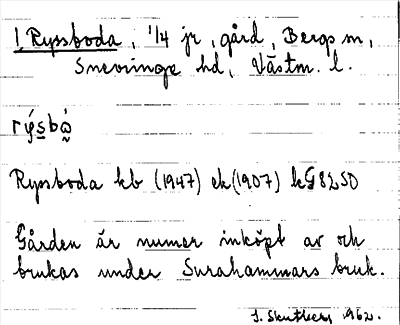 1 Ryssboda, 1/4 jr, gård, Bergs sn,
Snevringe hd, Västm. l.
rýsbo̊̀
Ryssboda kb (1947) ek (1907) kG8250
Gården är numer inköpt av och
brukas under Surahammars bruk.
J. Skutberg 1962.